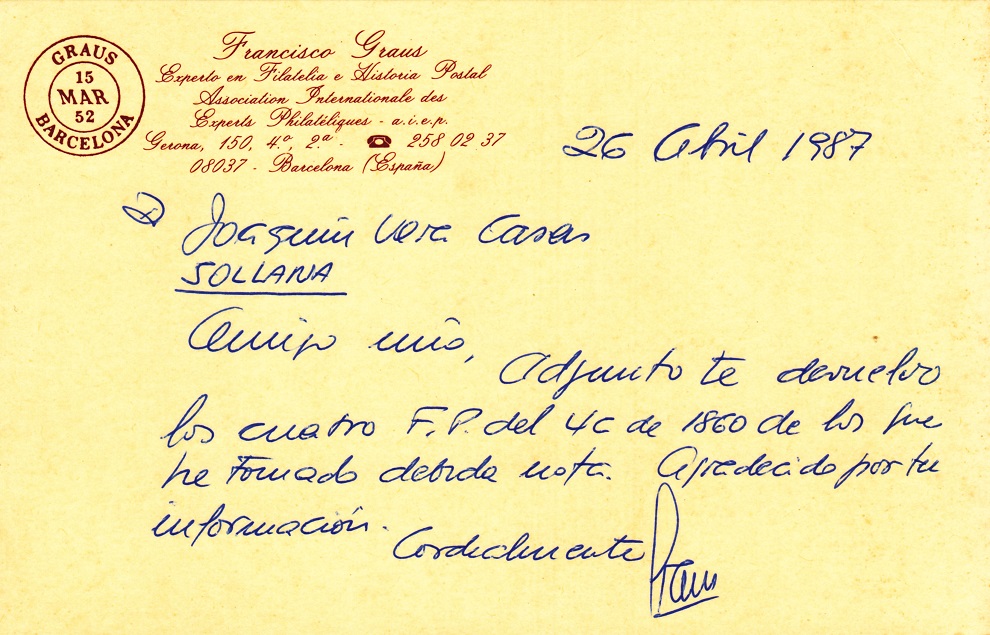 GRAUS
15
MAR
52
BARCELONA
Francisco Graus
Experto en Filatelia e Historia Postal
Association Internationale des
Experts Philatéliques - a.i.e.p.
Gerona, 150, 4.º, 2.ª - ☎ 258 02 37
08037 - Barcelona (España)
26 Abril 1987
D Joaquín Vera Casas
SOLLANA
Amigo mío,
Adjunto te devuelvo
los cuatro F.P. del 4c de 1860 de los que
he tomado debida nota. Agradecido por tu
información.
Cordialmente
Graus